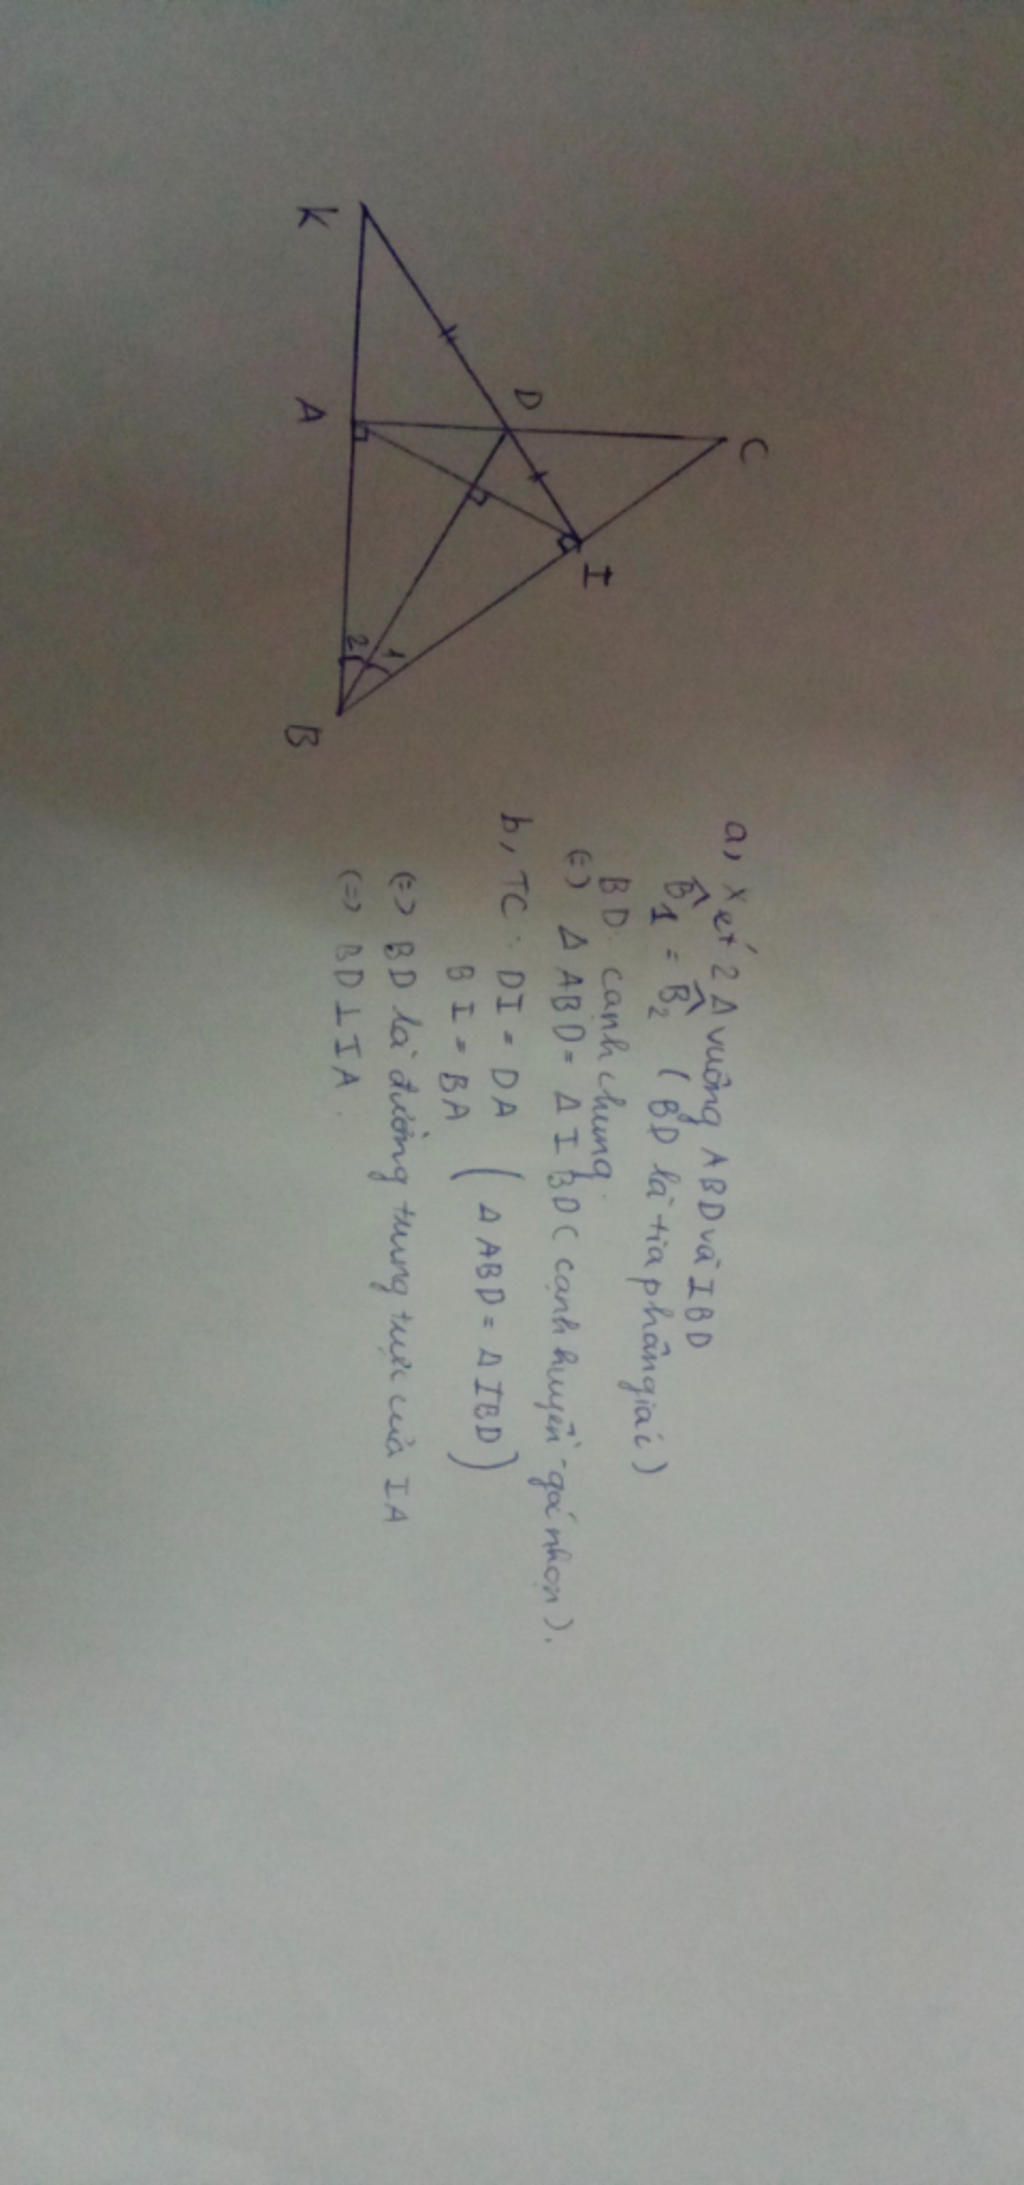 K
A
D
C
I
B
2
1
a, Xét 2 Δ vuông ABD và IBD
B̂1 = B̂2 (BD là tia phân giác)
BD cạnh chung.
(=) Δ ABD = Δ IBD (cạnh huyền - gó nhọn).
b, TC : DI = DA
BI = BA (Δ ABD = Δ IBD)
(=) BD là đường trung trực của IA
(=) BD ⊥ IA.